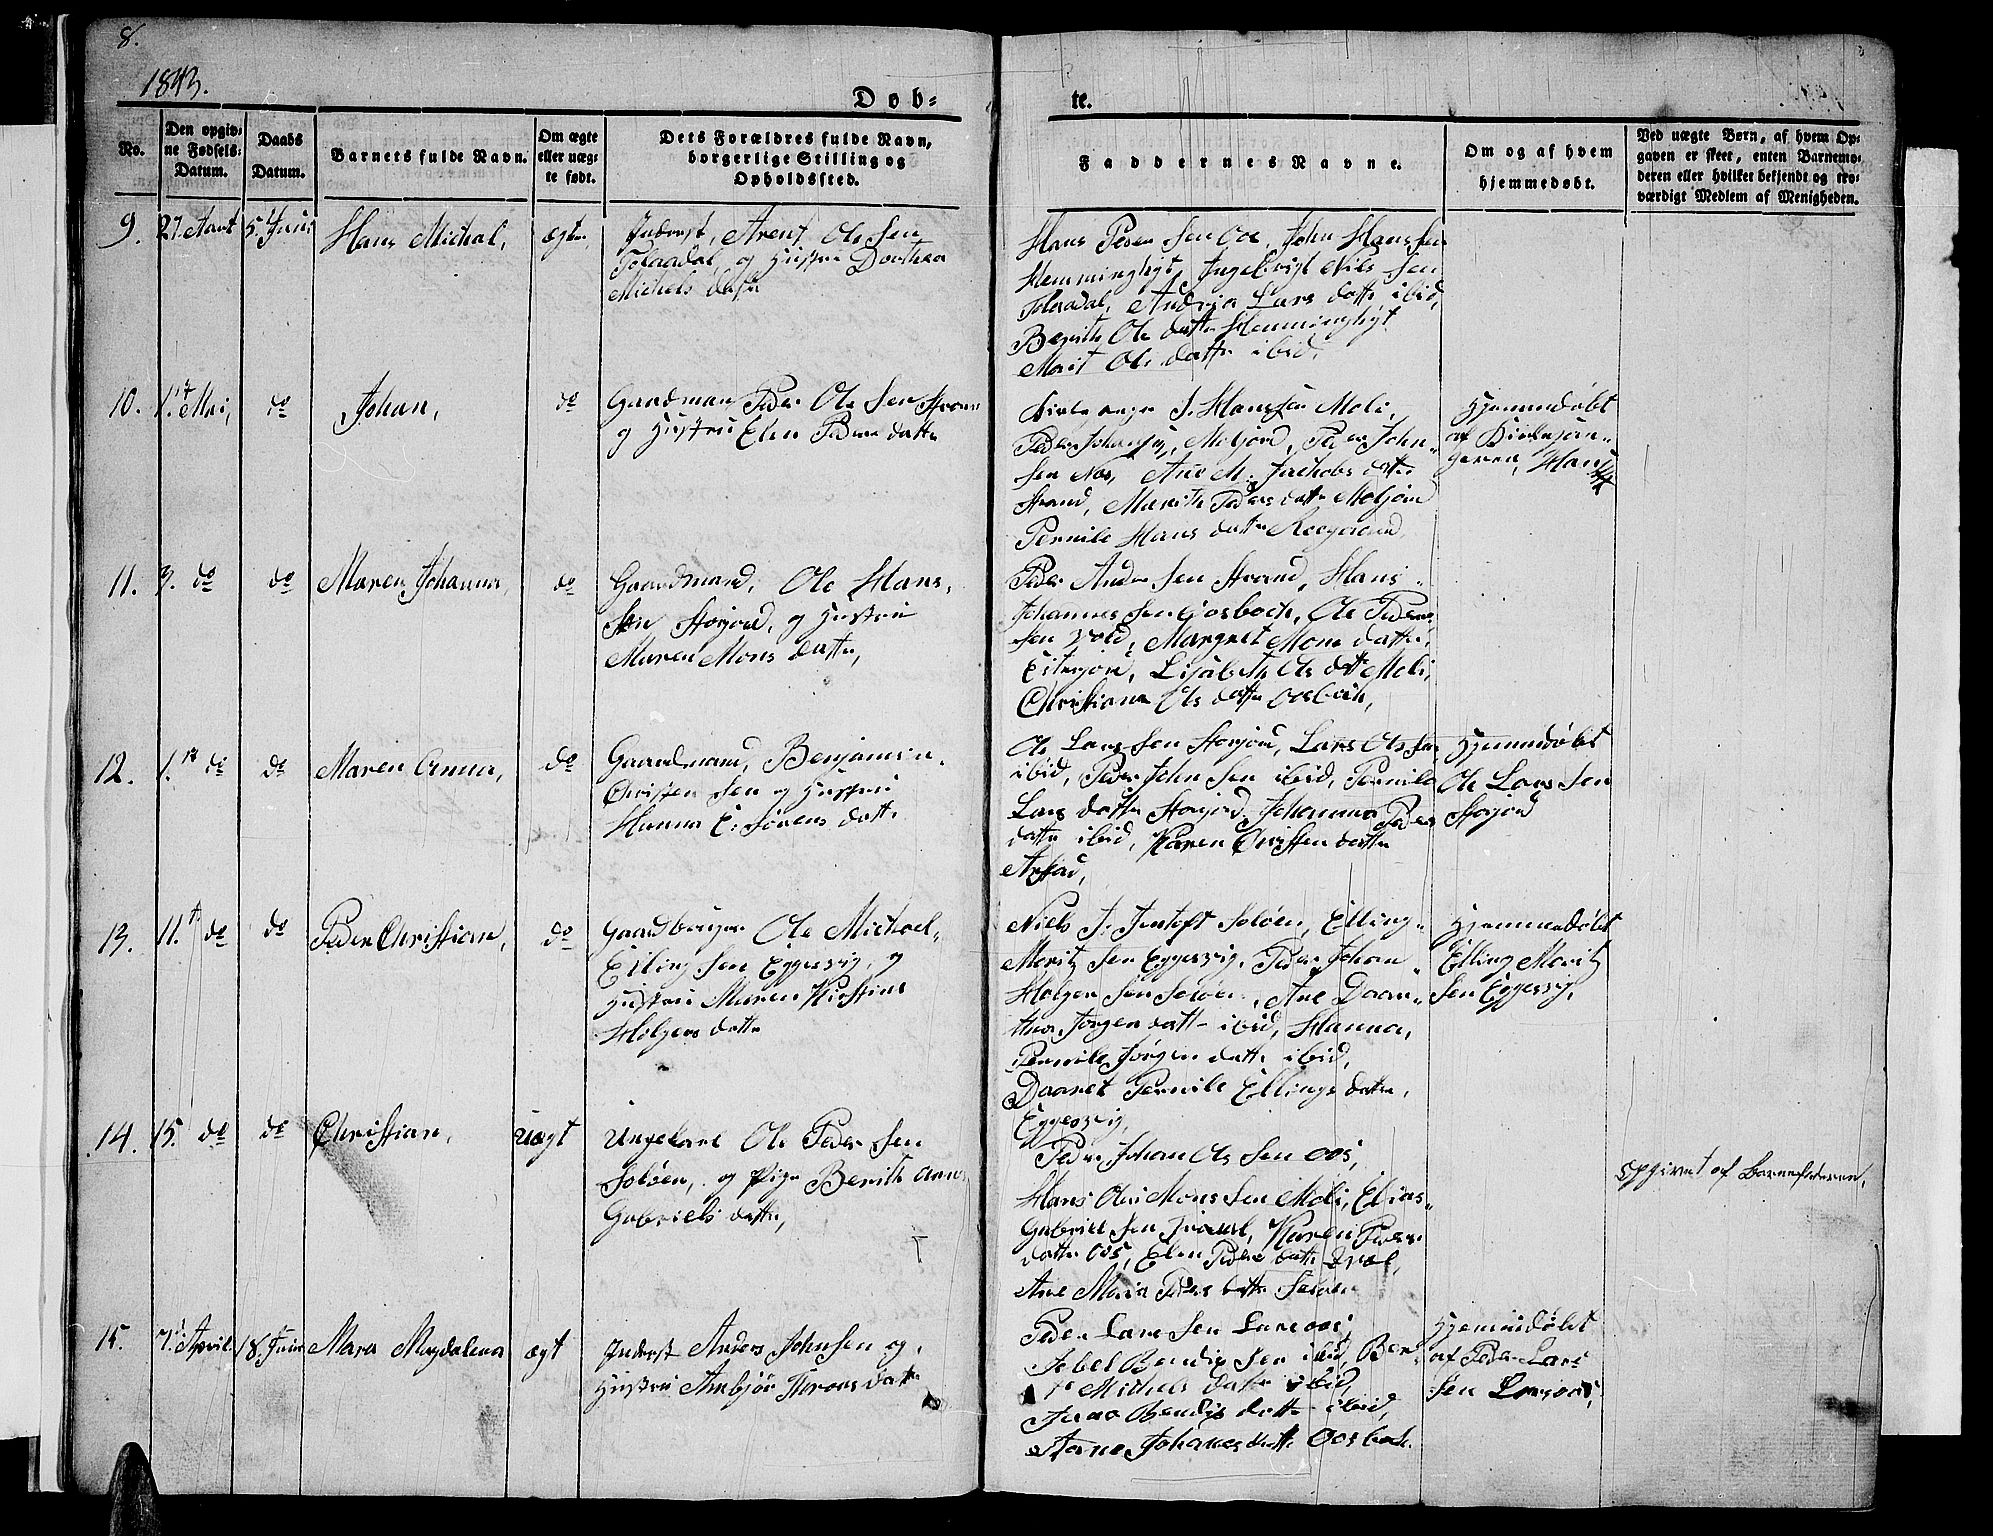 8.
1843.
Dob-
te.
No.
Den opgiv-
ne Fødsels-
Datum.
Daabs
Datum.
Barnets fulde Navn.
Om ægte
eller uæg-
te født.
Dets Forældres fulde Navn,
borgerlige Stilling og
Opholdssted.
Faddernes Navne.
Om og af hvem
hjemmedøbt.
Ved uægte Børn, af hvem Op-
gaven er skeet, enten Barnemo-
deren eller hvilket bekjendt og tro-
værdigt Medlem af Menigheden.
9.
5. Juni
Hans Michal,
ægte
Inderst, Arent Ole Sen
og Hustru Dorthea
Michels datr
Hans Peder Sen Oos, John Hans Sen
Hemminghyt, Ingebrigt Nils Sen
Andrja Lars datter ibid,
Berith Ole datter Hemminghyt
Marit Ole datter ibid,
10.
1. Mai,
do
Johan,
do
Gaardmand Peder Ole Sen
og Hustru Elen Peders datter
J. Hanssen Moli,
Peder Johnsen, Moljord, Peder John-
Sen Nos, Ane M. Jachobs datter
Strand, Marith Peders datter Moljord
Pernile Hans datter
Hjemmedøbt
af Kirkesan-
geren, Hans
11.
3. do
do
Maren Johanna,
do
Gaardmand, Ole Hans-
Sen Storjord, og Hustru
Maren Mons datter,
Peder Ander Sen Strand, Hans
Johannes Sen Oosbach, Ole Peder
Sen Vold, Margret Mons datter
Lisabeth Ols datter Moli,
Christiana Ols datter Oosbach,
12.
1. do
do
Maren Anna,
do
Gaardmand, Benjamin
Christen Sen og Hustru
Hanna E. Sørens datter
Ole Lars Sen Storjord, Lars Ols Sen
ibid, Peder John Sen ibid, Pernile
Lars datter Storjord, Johanna Peder
datter ibid, Karen Christen datter
Arstad,
Hjemmedøbt
Ole Lars Sen
Storjord
13.
11. do
do
Peder Christian,
do
Gaardbruger Ole Michael
Elling Sen Eggesvig, og
Hustru Maren Kirstine
Holgers datter
Niels J. Jentoft Soløen, Elling
Moritz Sen Eggesvig, Peder Johan
Holger Sen Soløen, Ane Daar-
thea Jørgen datter ibid, Hanna,
Pernile Jørgen datter ibid,
Daaret Pernile Ellings datter,
Eggesvig,
Hjemmedøbt
Elling Moritz
Sen Eggesvig,
14.
15. do
do
Christian,
uægt
Ungekarl Ole Peder Sen
Soløen, og Pige Berith Anne
Gabriels datter,
Peder Johan Ols Sen Oos,
Hans Ole Mons Sen Moli, Elias
Gabriel Sen Karen Peder
datter Oos, Elen Peder datter
Ane Maria Peders datter Soløen
Opgivet af Barnefaderen.
15.
7. April
18. Juni
Mara Magdalena
ægt
Inderst Anders Johnsen og
Hustru Anbjør Throns datr
Peder Lars Sen Larsoos,
Jebel Bendix Sen ibid, Ber-
Michels datter ibid,
Bendix datter ibid,
Johanes datter Oosbach.
Hjemmedøbt
af Peder Lars
Sen Larsoos,